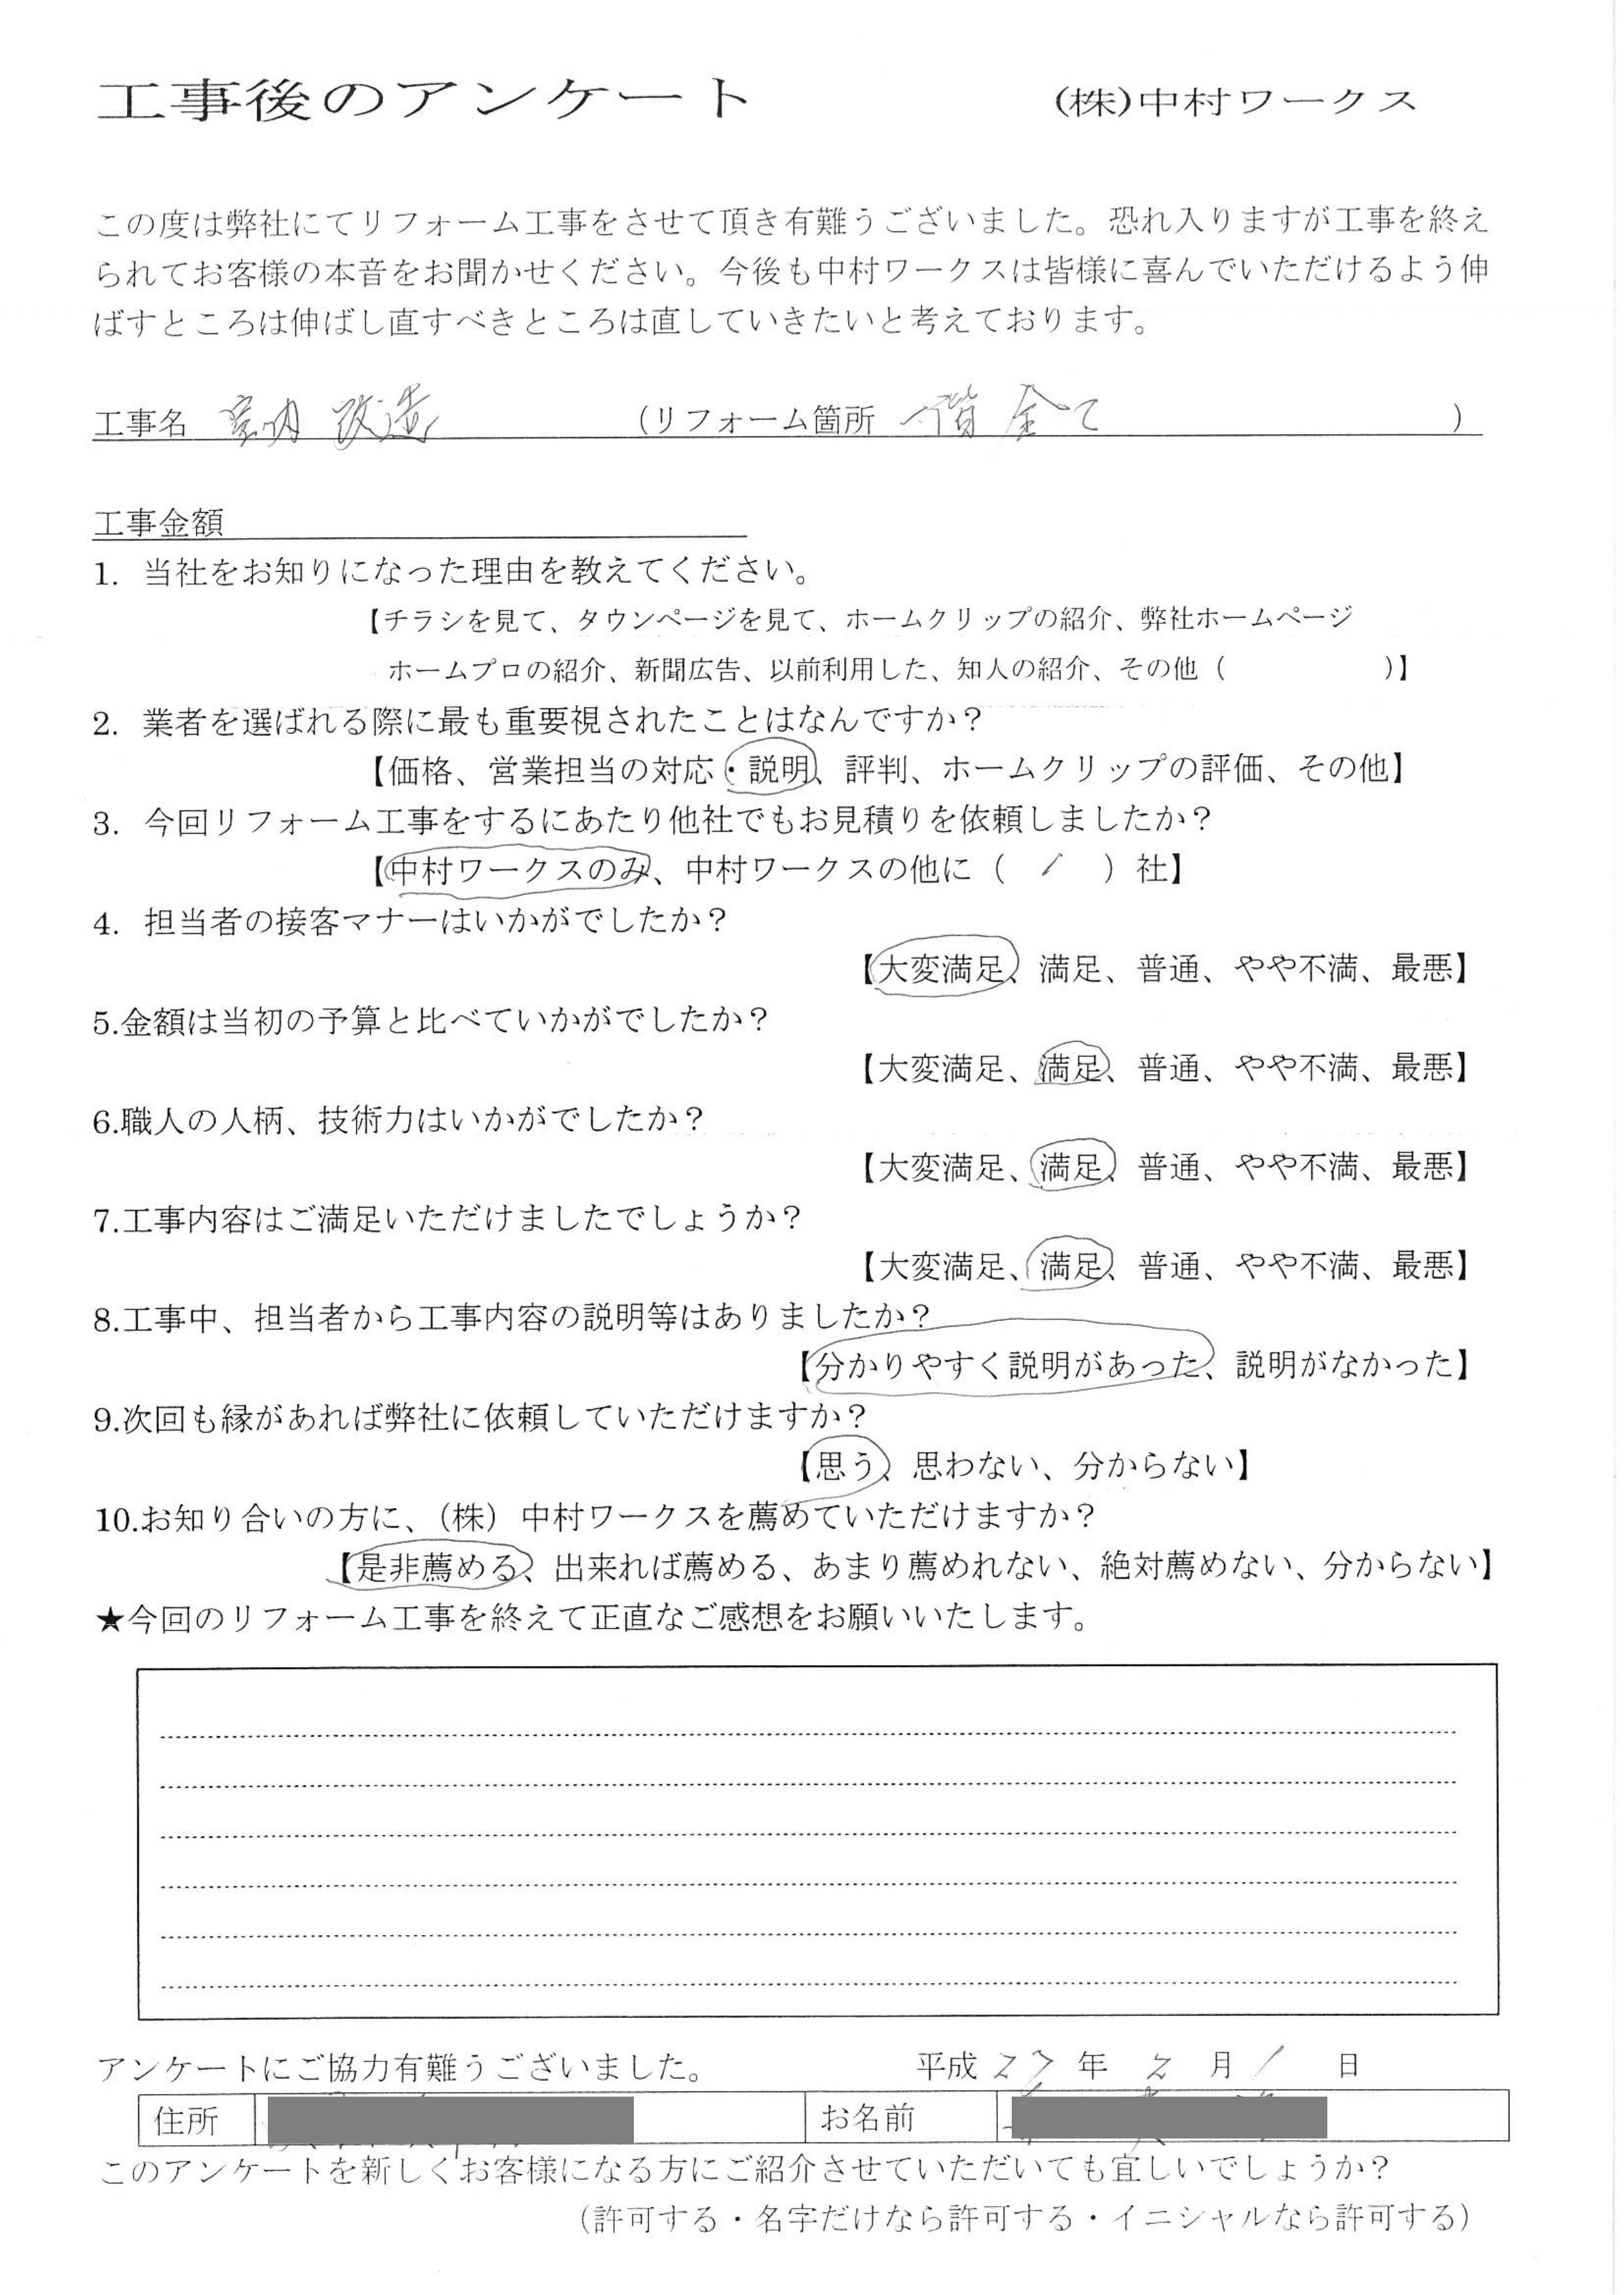 工事後のアンケート (株)中村ワークス
この度は弊社にてリフォーム工事をさせて頂き有難うございました。恐れ入りますが工事を終え
られてお客様の本音をお聞かせください。今後も中村ワークスは皆様に喜んでいただけるよう伸
ばすところは伸ばし直すべきところは直していきたいと考えております。
工事名 室内 改造 (リフォーム箇所 一階 全て )
工事金額
1. 当社をお知りになった理由を教えてください。
【チラシを見て、タウンページを見て、ホームクリップの紹介、弊社ホームページ
ホームプロの紹介、新聞広告、以前利用した、知人の紹介、その他（ )】
2. 業者を選ばれる際に最も重要視されたことはなんですか？
【価格、営業担当の対応・説明、評判、ホームクリップの評価、その他】
3. 今回リフォーム工事をするにあたり他社でもお見積りを依頼しましたか？
【中村ワークスのみ、中村ワークスの他に（ / ）社】
4. 担当者の接客マナーはいかがでしたか？
【大変満足、満足、普通、やや不満、最悪】
5.金額は当初の予算と比べていかがでしたか？
【大変満足、満足、普通、やや不満、最悪】
6.職人の人柄、技術力はいかがでしたか？
【大変満足、満足、普通、やや不満、最悪】
7.工事内容はご満足いただけましたでしょうか？
【大変満足、満足、普通、やや不満、最悪】
8.工事中、担当者から工事内容の説明等はありましたか？
【分かりやすく説明があった、説明がなかった】
9.次回も縁があれば弊社に依頼していただけますか？
【思う、思わない、分からない】
10.お知り合いの方に、（株）中村ワークスを薦めていただけますか？
【是非薦める、出来れば薦める、あまり薦めれない、絶対薦めない、分からない】
★今回のリフォーム工事を終えて正直なご感想をお願いいたします。
アンケートにご協力有難うございました。 平成 27 年 2 月 1 日
住所 お名前
このアンケートを新しくお客様になる方にご紹介させていただいても宜しいでしょうか？
（許可する・名字だけなら許可する・イニシャルなら許可する）